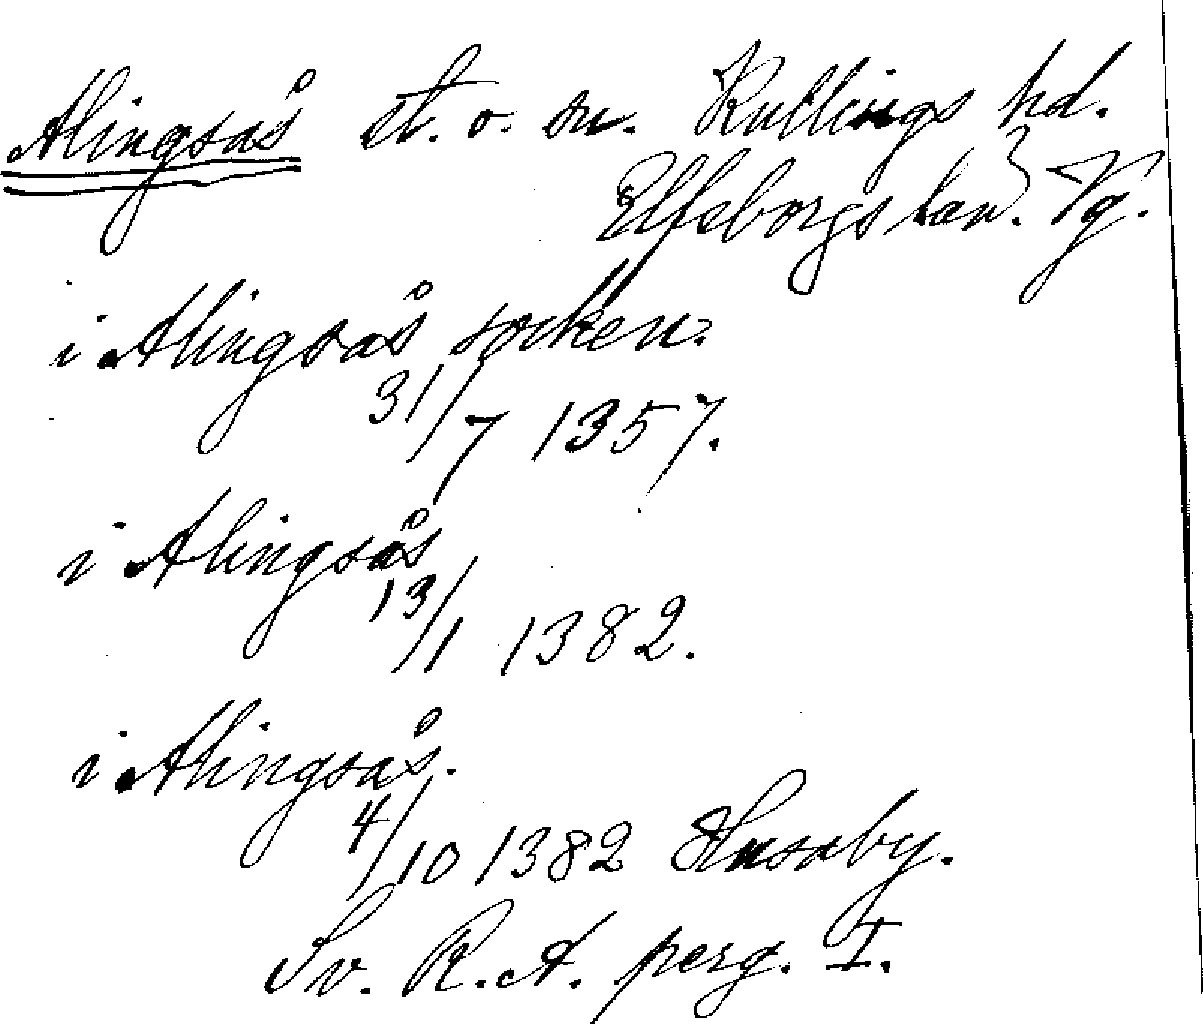 Alingsås st. o. sn. Kullings hd.
Elfsborgs län. Vg.
i Alingsås socken.
31/7 1357.
i Alingsås
13/1 1382.
i Alingsås.
4/10 1382 Husaby.
Sv. R. A. perg. I.